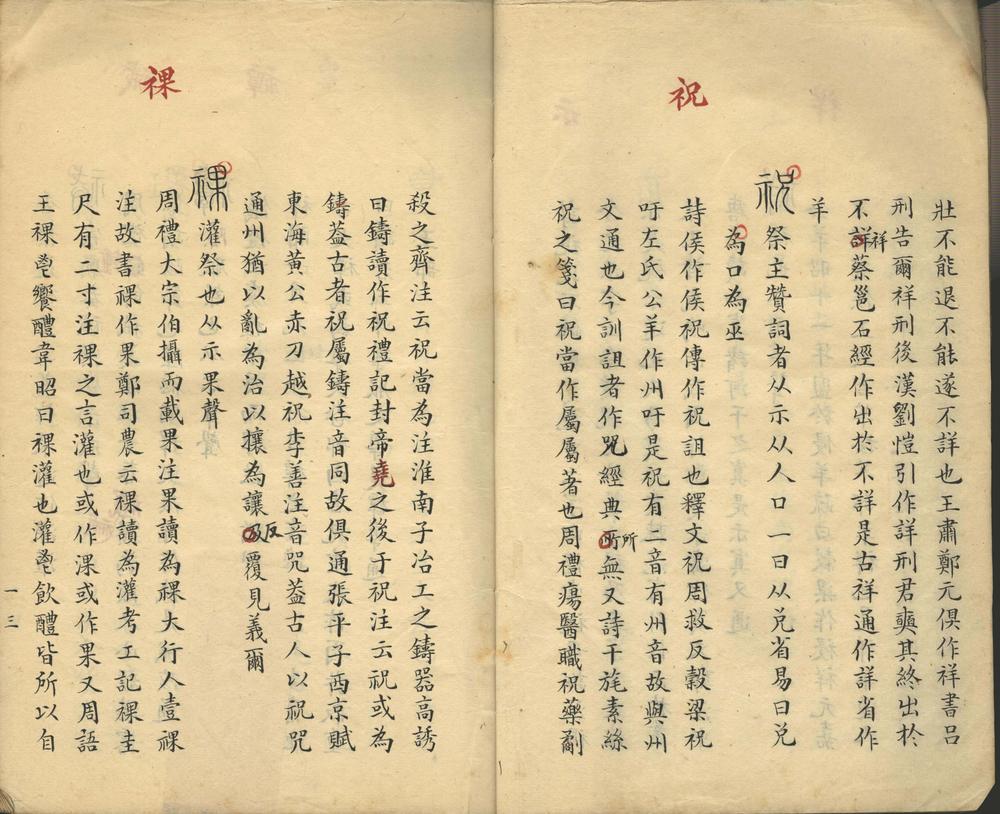 壯不能退不能遂不詳也王肅鄭元俱作祥書吕
刑告爾祥刑後漢劉愷引作詳刑君奭其終出於
不詳祥蔡邕石經作出於不詳是古祥通作詳省作
羊
祝
祝祭主贊詞者从示从人口一曰从兑省易曰兑
為口為巫
詩侯作侯祝傳作祝詛也釋文祝周救反穀梁祝
吁左氏公羊作州吁是祝有二音有州音故與州
文通也今訓詛者作咒經典所所無又詩干旄素絲
祝之箋曰祝當作屬屬著也周禮瘍醫職祝藥劀
殺之齊注云祝當為注淮南子冶工之鑄器高誘
曰鑄讀作祝禮記封帝堯之後于祝注云祝或為
鑄葢古者祝屬鑄注音同故俱通張平子西京賦
東海黄公赤刀越祝李善注音咒葢古人以祝咒
通州猶以亂為治以攘為讓反覆見義爾
祼
祼灌祭也从示果聲
周禮大宗伯攝而載果注果讀為祼大行人壹祼
注故書祼作果鄭司農云祼讀為灌考工記祼圭
尺有二寸注祼之言灌也或作淉或作果又周語
王祼鬯饗醴韋昭曰祼灌也灌鬯飲醴皆所以自
一三